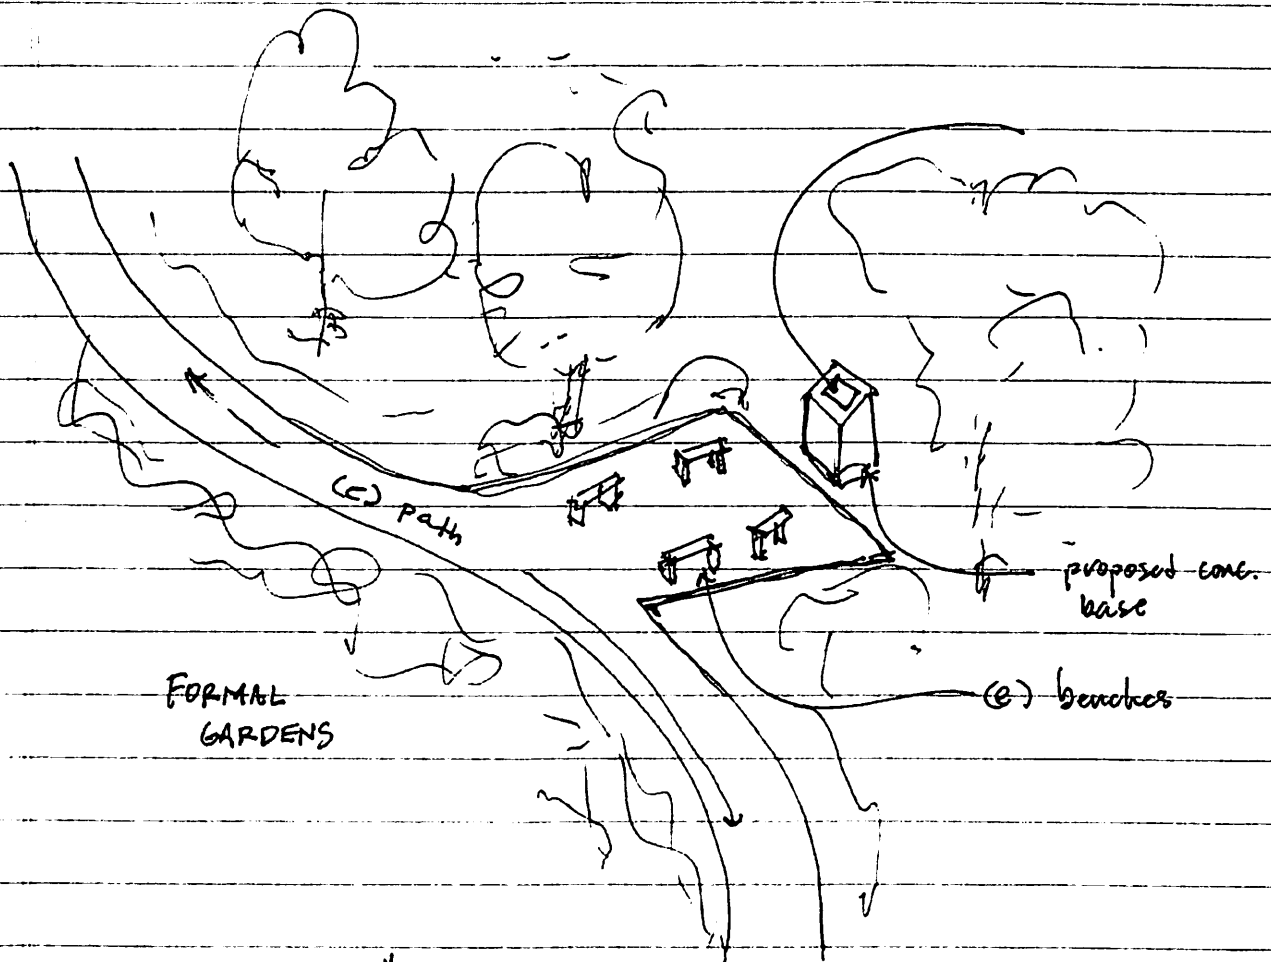 (e) path
proposed conc.
base
(e) benches
FORMAL
GARDENS